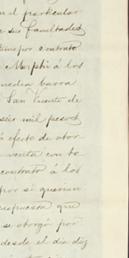 en el particular
a sus facultades
tino por contrato
Murphi á los
media barra
San Vicente de
seis mil pesos
efecto de otor
venta con to
contrato á los
por si quieran
respuesta que
se otorgó por
desde el dia dos